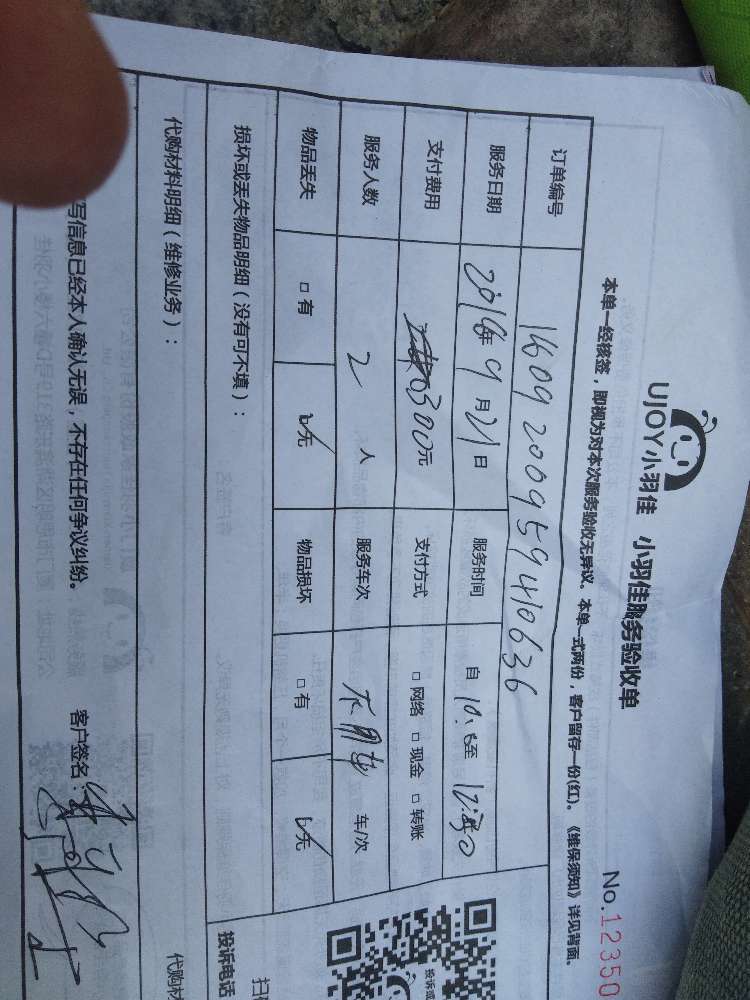 UJOY小羽佳 小羽佳服务验收单
No.12350
本单一经核签，即视为对本次服务验收无异议。本单一式两份，客户留存一份(红)。《维保须知》详见背面。
订单编号 1609200959410636
服务日期 2016年9月21日 服务时间 自10:00至12:30
支付费用 300元 支付方式 □网络 □现金 □转账
服务人数 2人 服务车次 不用车 车/次
物品丢失 □有 ☑无 物品损坏 □有 ☑无
损坏或丢失物品明细（没有可不填）：
投诉电话
代购材料明细（维修业务）：
写信息已经本人确认无误，不存在任何争议纠纷。 客户签名：